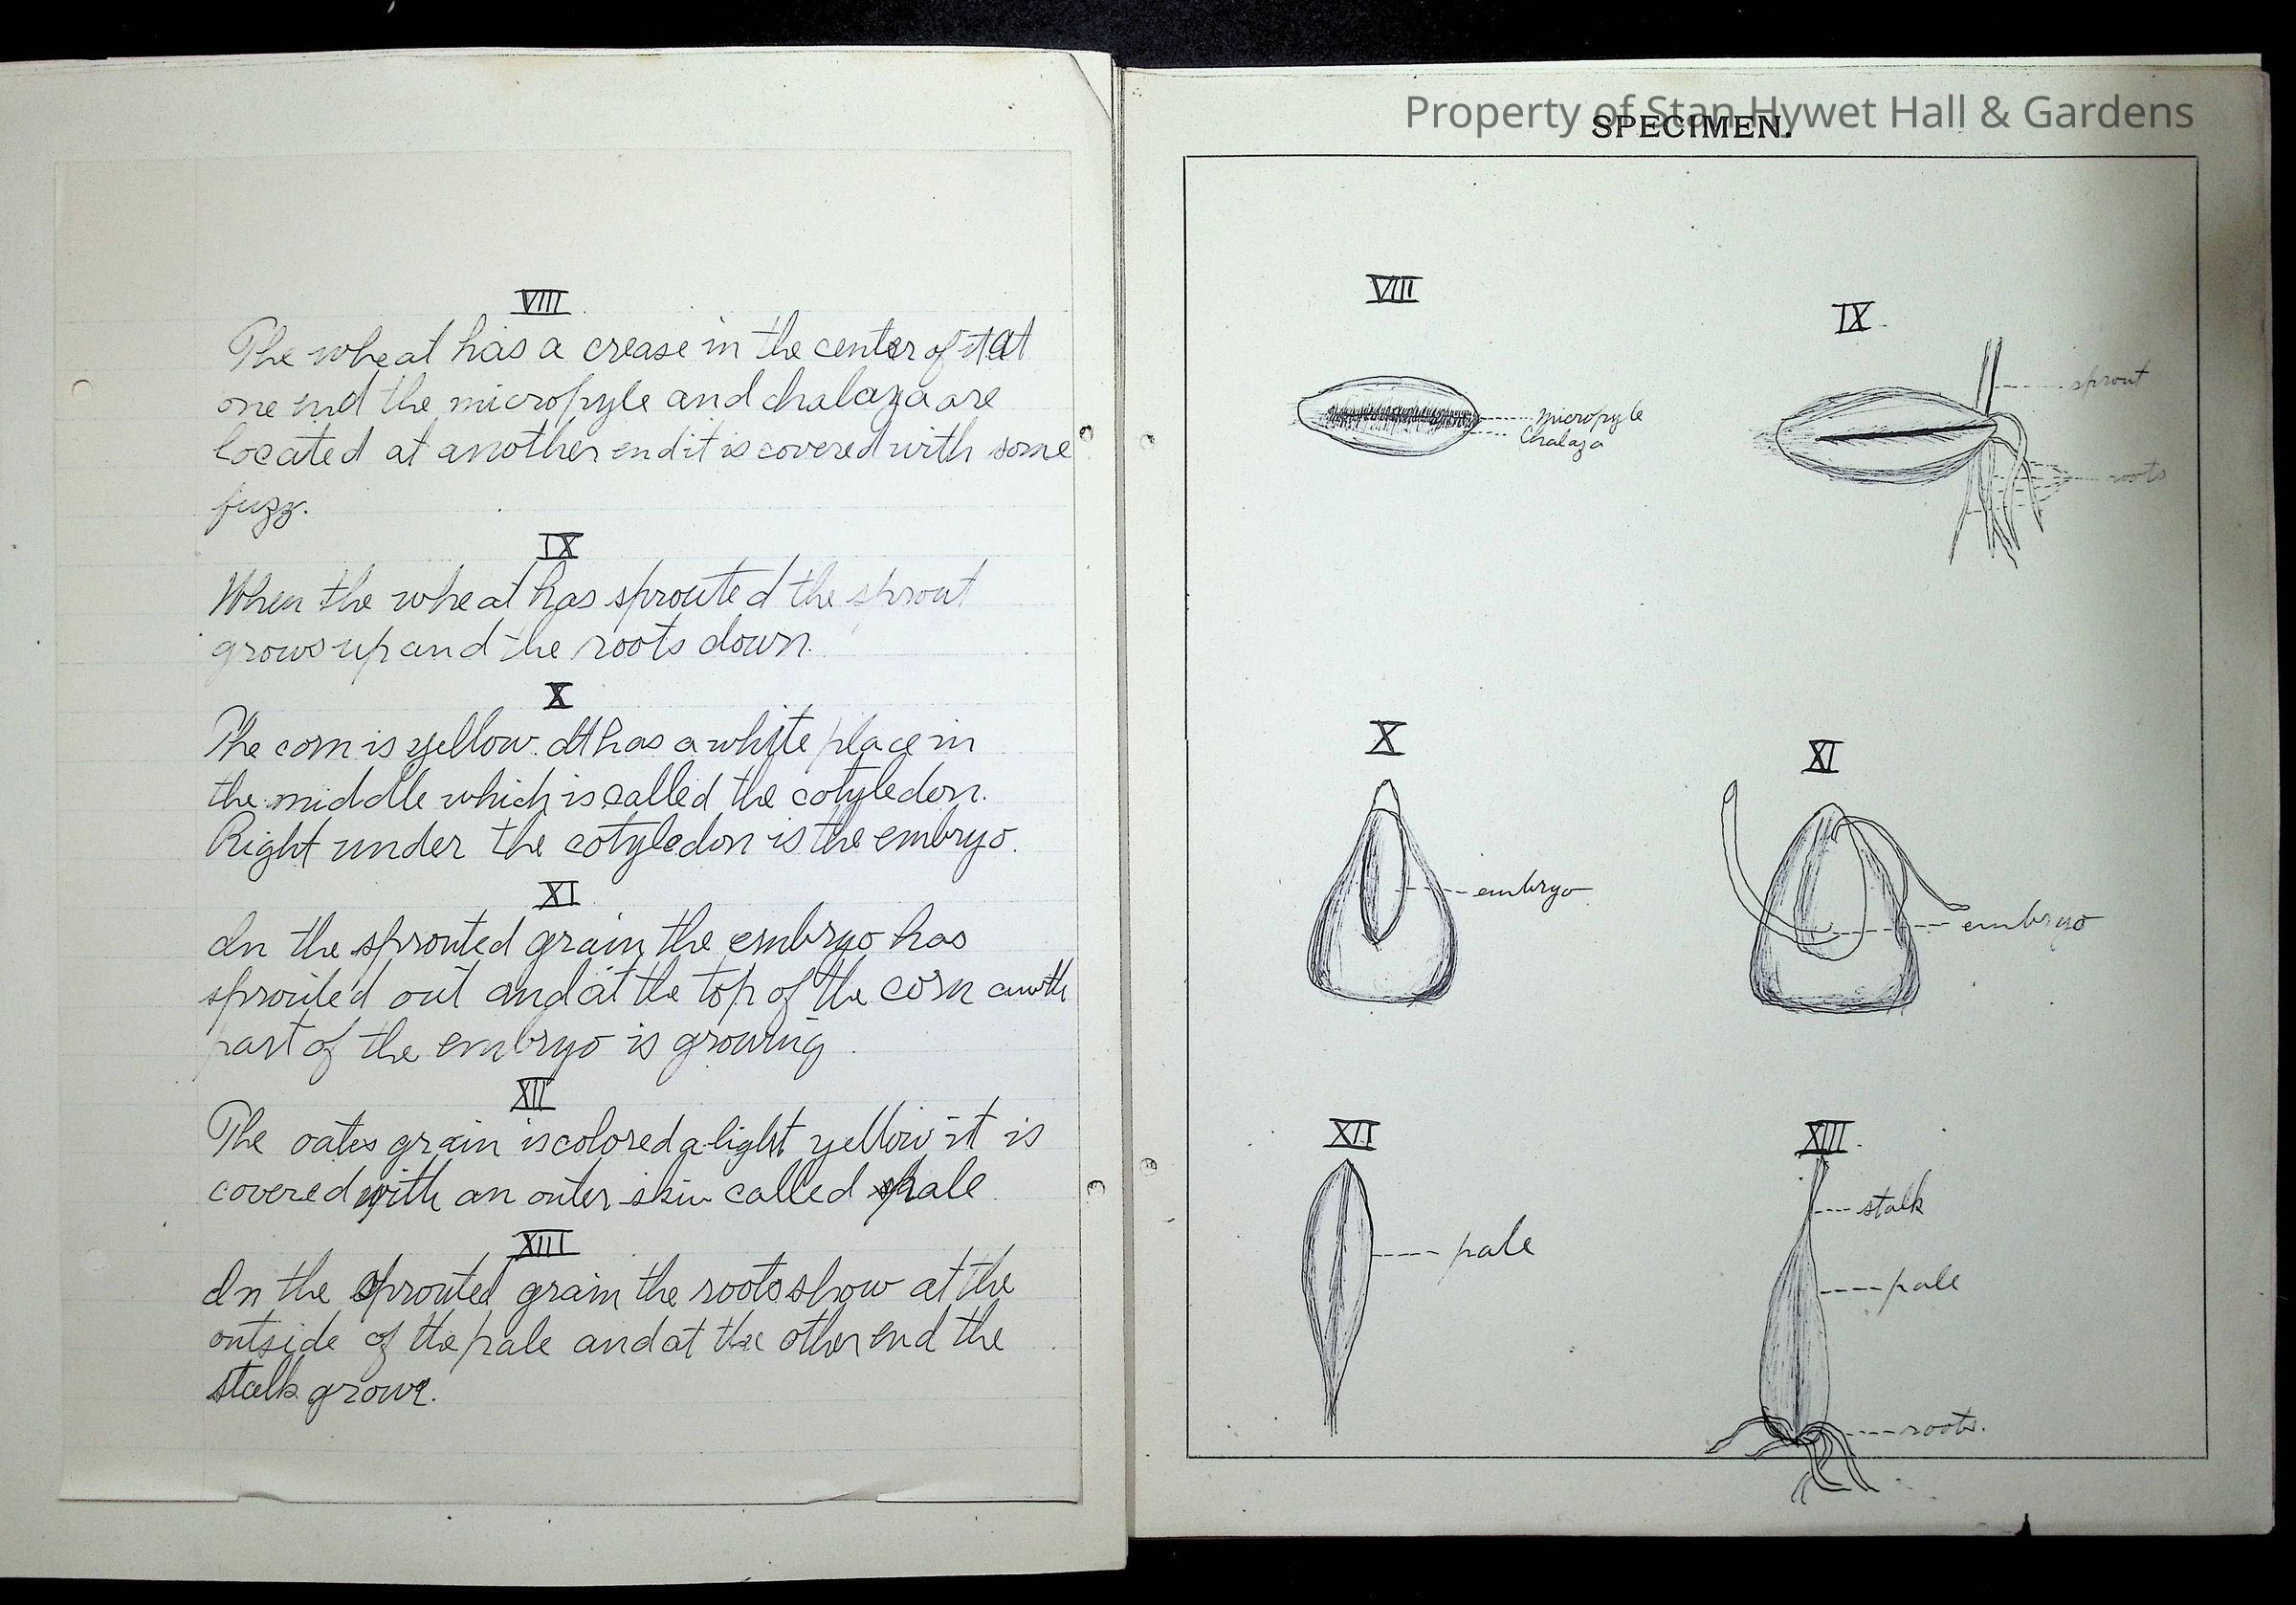 VIII
The wheat has a crease in the center of it at
one end the micropyle and chalaza are
located at another end it is covered with some
fuzz.
IX
When the wheat has sprouted the sprout
grows up and the roots down.
X
The corn is yellow. It has a white place in
the middle which is called the cotyledon.
Right under the cotyledon is the embryo.
XI
In the sprouted grain the embryo has
sprouted out and at the top of the corn
part of the embryo is growing.
XII
The oates grain is colored a light yellow it is
covered with an outer skin called pale
XIII
In the sprouted grain the roots show at the
outside of the pale and at the other end the
stalk grows.
Property of Stan Hywet Hall & Gardens
SPECIMEN.
VIII
micropyle
Chalaza
IX
sprout
roots
X
embryo
XI
embryo
XII
pale
XIII
stalk
pale
roots.